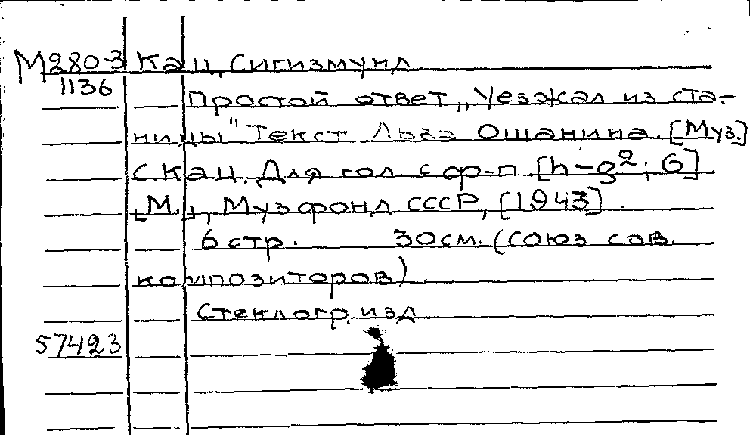 М280-3 Кац, Сигизмунд
1136
Простой ответ „Уезжал из ста-
ницы" Текст Льва Ошанина. [Муз.]
С. Кац. Для гол с ф-п [h-g²; G]
[М.], Музфонд СССР, [1943].
6 стр. 30см. (Союз сов.
композиторов)
Стеклогр. изд
57423